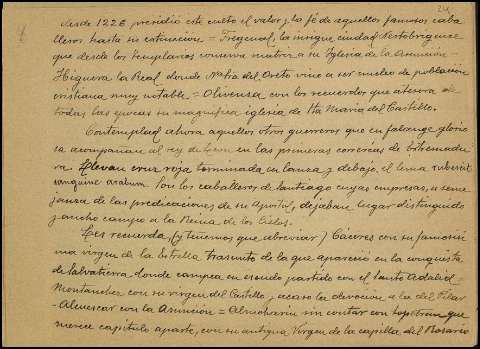 24
desde 1226 presidió este culto el valor y la fé de aquellos famosos caba
lleros hasta su extincion = Fregenal, la insigne ciudad
que desde los templarios conserva matriz a su Iglesia de la Asunción =
Higuera la Real donde Ntra del Oreto vino a ser nucleo de población
cristiana muy notable = Olivensa con los recuerdos que atesora de
todas las epocas su magnifica iglesia de Sta Maria del Castillo.
Contemplad ahora aquellos otros guerreros que en falange glorio
sa acompañan al rey de Leon en las primeras correrias de Extremadu
ra. Llevan cruz roja terminada en lanza y debajo, el lema rubet
sanguine arabum. Son los caballeros de Santiago cuyas empresas, a seme
janza de las predicaciones de su Apostol, dejaban lugar distinguido
y ancho campo a la Reina de los Cielos.
Les recuerda (y tenemos que abreviar) Cáceres con su famosisi
ma virgen de la Estrella, trasunto de la que apareció en la conquista
de Salvatierra donde campea en escudo partido con el Santo Adalid =
Montanchez con su virgen del Castillo y acaso la devoción a la del Pilar
= Almuscar con la Asunción = Almoharin sin contar con que
merece capitulo aparte, con su antigua Virgen de la capilla del Rosario